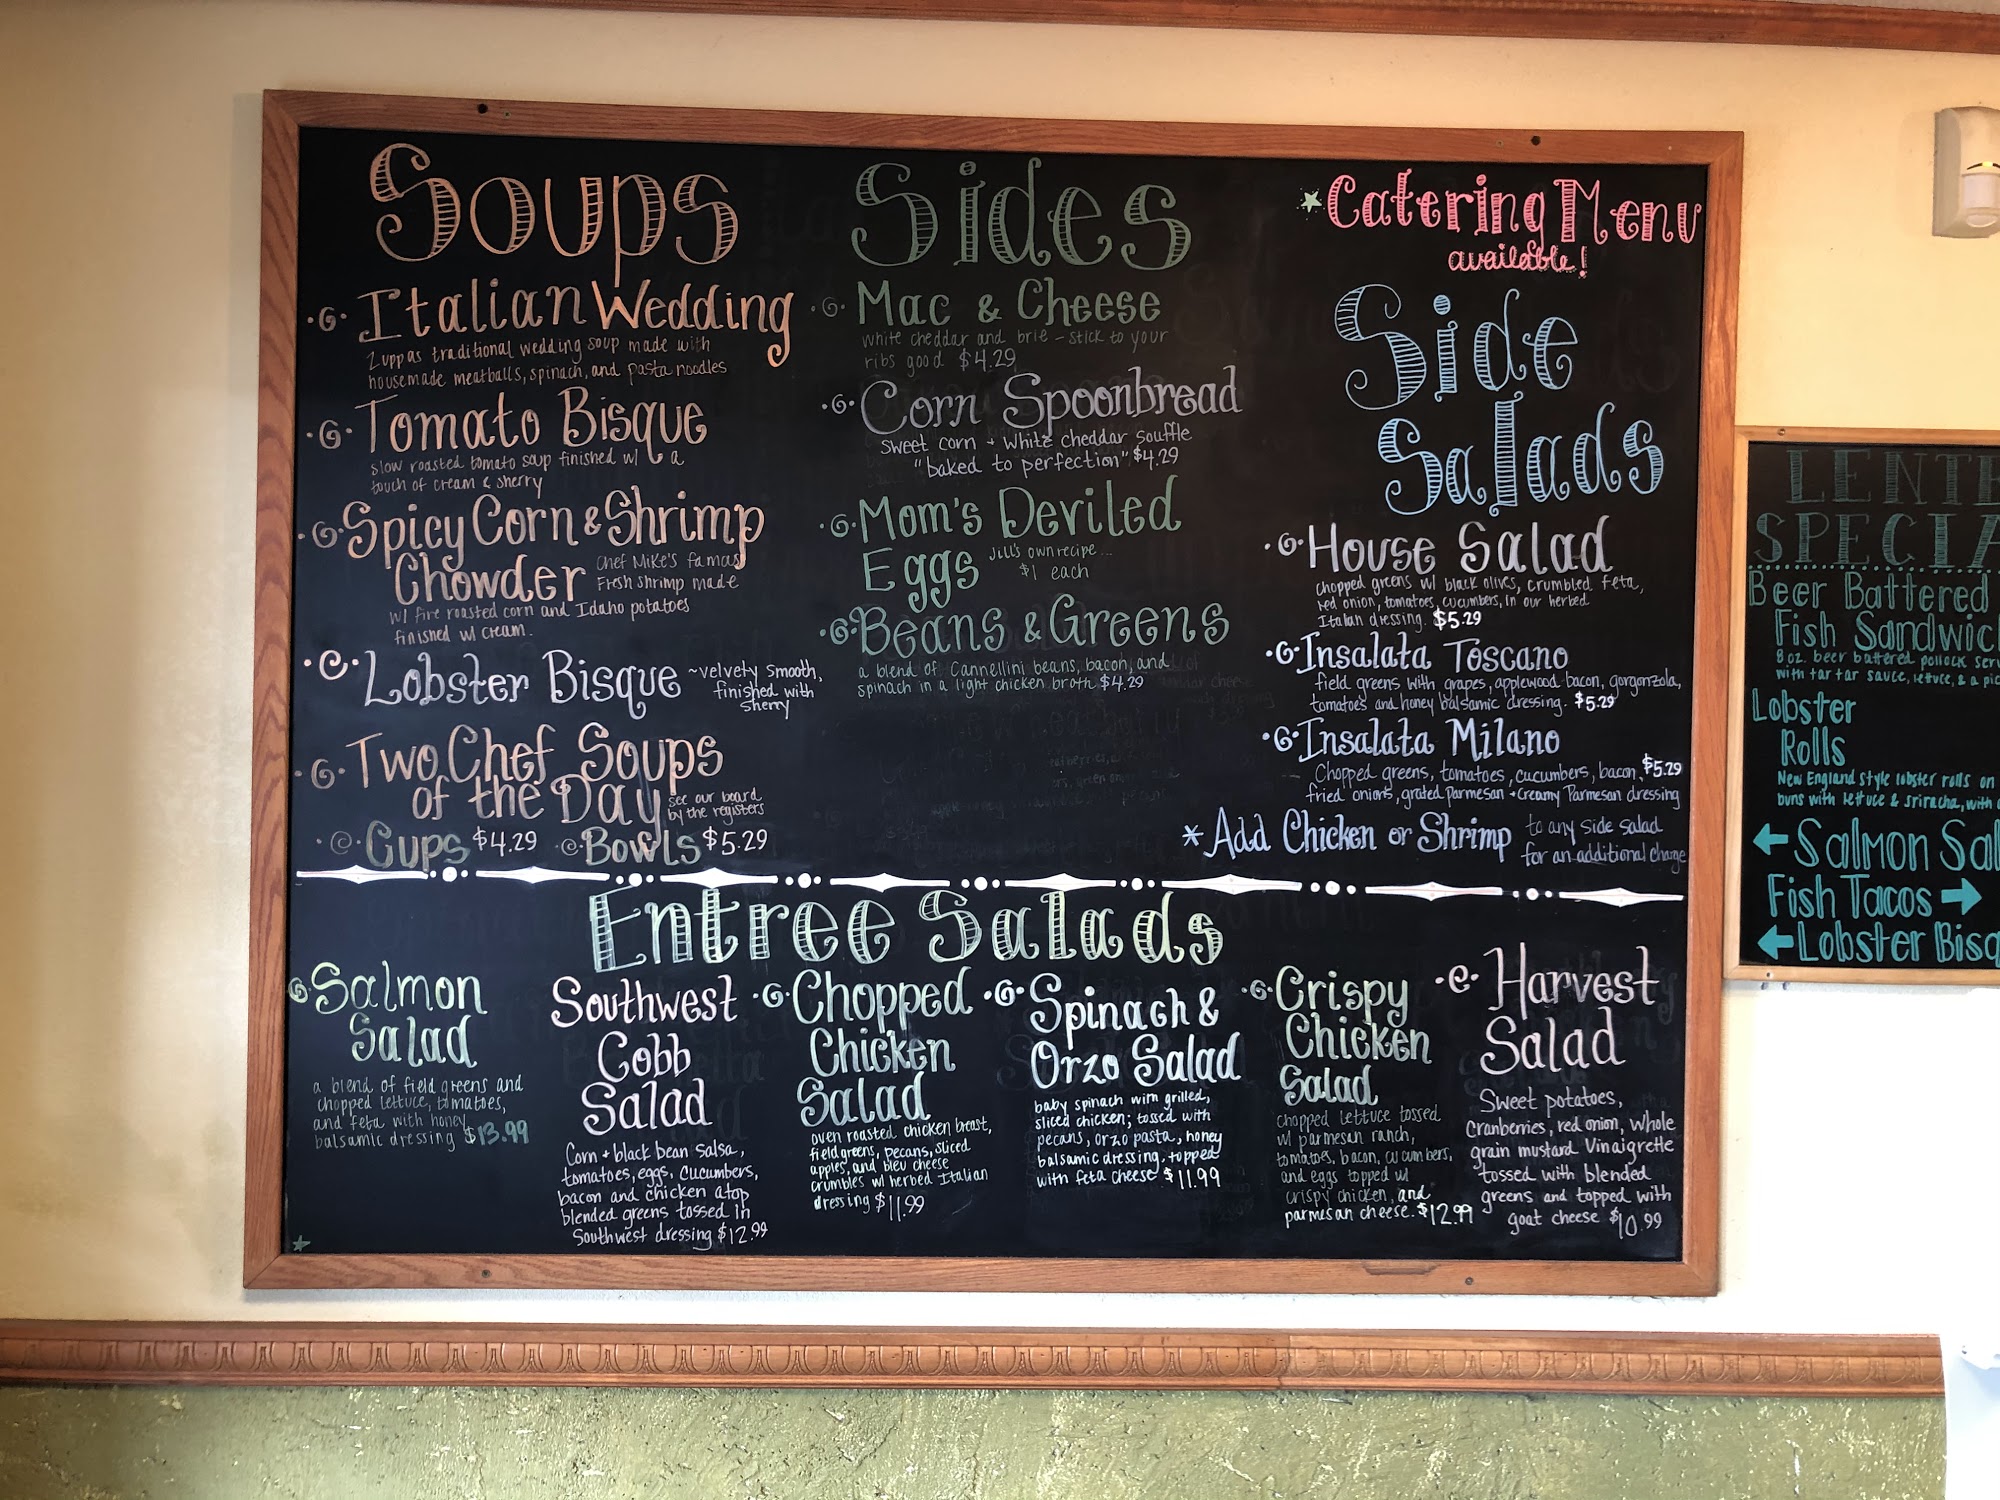 Soups
Italian Wedding
Zuppas traditional wedding soup made with
housemade meatballs, spinach, and pasta noodles
Tomato Bisque
slow roasted tomato soup finished w/ a
touch of cream & sherry
Spicy Corn & Shrimp
Chowder
Chef Mike's famas
Fresh shrimp made
w/ fire roasted corn and Idaho potatoes
finished w/ cream.
Lobster Bisque
~velvety smooth,
finished with
sherry
Two Chef Soups
of the Day
see our board
by the registers
Cups $4.29 Bowls $5.29
Sides
Mac & Cheese
white cheddar and brie - stick to your
ribs good $4.29
Corn Spoonbread
sweet corn + white cheddar souffle
"baked to perfection" $4.29
Mom's Deviled
Eggs
Jill's own recipe...
$1 each
Beans & Greens
a blend of Cannellini beans, bacon, and
spinach in a light chicken broth $4.29
Catering Menu
available!
Side
Salads
House Salad
chopped greens w/ black olives, crumbled feta,
red onion, tomatoes, cucumbers, in our herbed
Italian dressing. $5.29
Insalata Toscano
field greens with grapes, applewood bacon, gorgonzola,
tomatoes and honey balsamic dressing. $5.29
Insalata Milano
Chopped greens, tomatoes, cucumbers, bacon, $5.29
fried onions, grated parmesan + creamy Parmesan dressing
*Add Chicken or Shrimp
to any side salad
for an additional charge
Entree Salads
Salmon
Salad
a blend of field greens and
chopped lettuce, tomatoes,
and feta with honey
balsamic dressing $13.99
Southwest
Cobb
Salad
Corn + black bean salsa,
tomatoes, eggs, cucumbers,
bacon and chicken atop
blended greens tossed in
Southwest dressing $12.99
Chopped
Chicken
Salad
oven roasted chicken breast,
field greens, pecans, sliced
apples, and bleu cheese
crumbles w/ herbed Italian
dressing $11.99
Spinach &
Orzo Salad
baby spinach with grilled,
sliced chicken; tossed with
pecans, orzo pasta, honey
balsamic dressing, topped
with feta cheese $11.99
Crispy
Chicken
Salad
chopped lettuce tossed
w/ parmesan ranch,
tomatoes, bacon, cucumbers,
and eggs topped w/
crispy chicken, and
parmesan cheese. $12.99
Harvest
Salad
Sweet potatoes,
cranberries, red onion, whole
grain mustard vinaigrette
tossed with blended
greens and topped with
goat cheese $10.99
LENTE
SPECIA
Beer Battered
Fish Sandwic
8 oz. beer battered pollock serv
with tartar sauce, lettuce, & a pic
Lobster
Rolls
New England style lobster rolls on
buns with lettuce & sriracha, with
Salmon Sal
Fish Tacos
Lobster Bisq